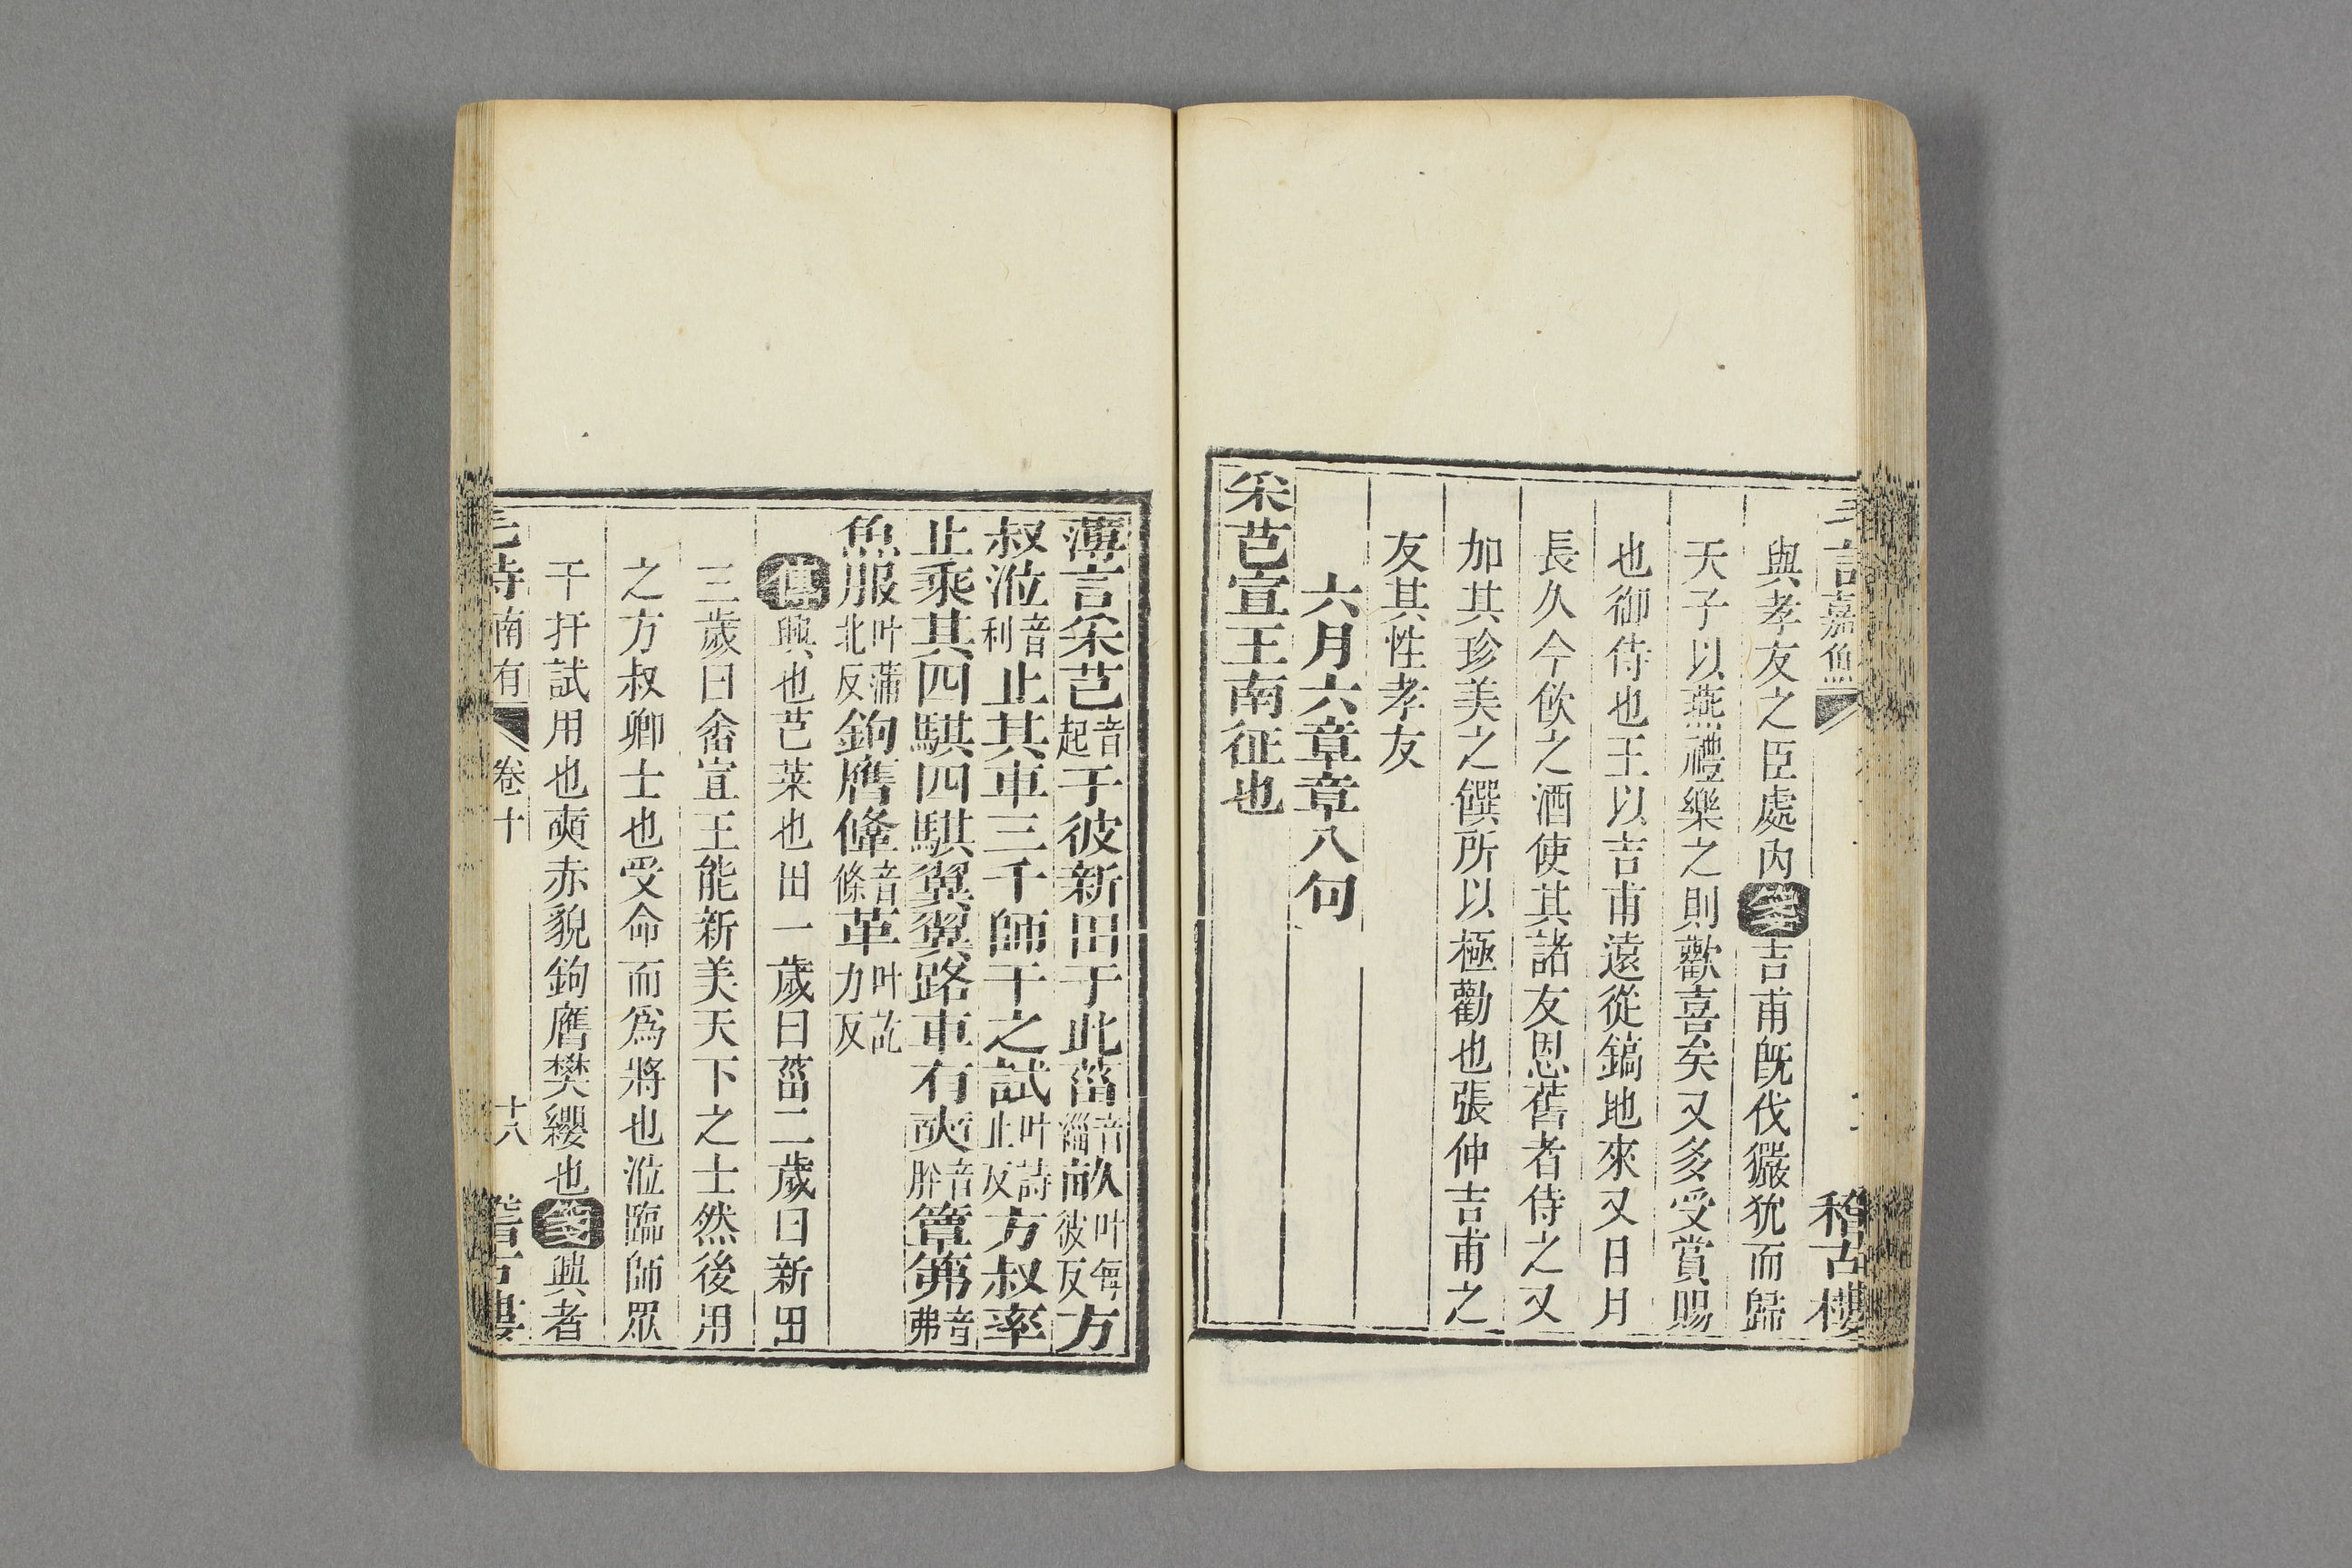 言嘉魚
稽古樓
與孝友之臣處內箋吉甫旣伐玁狁而歸
天子以燕禮樂之則歡喜矣又多受賞賜
也御侍也王以吉甫遠從鎬地來又日月
長久今飲之酒使其諸友恩舊者侍之又
加其珍美之饌所以極勸也張仲吉甫之
友其性孝友
六月六章章八句
采芑宣王南征也
薄言采芑音起于彼新田于此菑音緇畝叶每彼反方
叔涖音利止其車三千師干之試叶詩止反方叔率
止乘其四騏四騏翼翼路車有奭音肸簟茀音弗
魚服叶蒲北反鉤膺鞗音條革叶訖力反
傳興也芑菜也田一歲曰菑二歲曰新田
三歲曰畬宣王能新美天下之士然後用
之方叔卿士也受命而爲將也涖臨師眾
干扞試用也奭赤貌鉤膺樊纓也箋興者
毛詩南有 卷十 十八 稽古樓